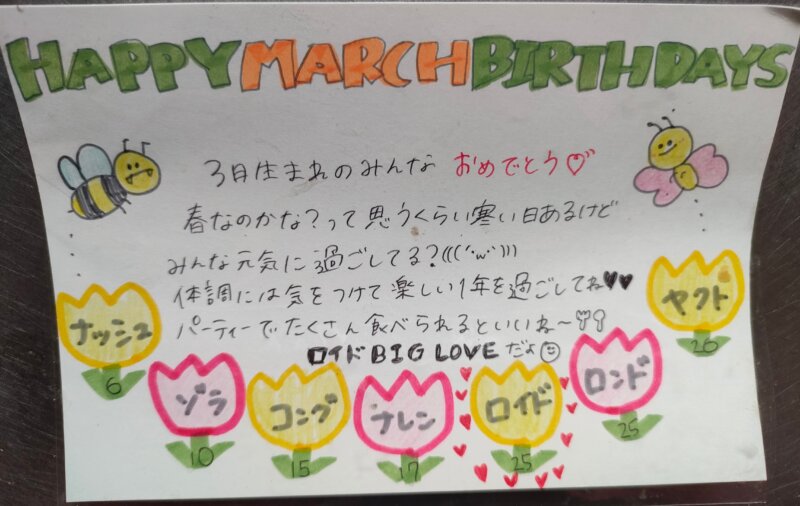 HAPPY MARCH BIRTHDAYS
3月生まれのみんな おめでとう♡
春なのかな？って思うくらい寒い日あるけど
みんな元気に過ごしてる？(((´･ω･`)))
体調には気をつけて楽しい1年を過ごしてね♥♥
パーティーでたくさん食べられるといいね〜🍴
ロイド BIG LOVE だよ☺
ナッシュ
6
ゾラ
10
コング
15
ナレン
17
ロイド
25
ロンド
25
ヤクト
26